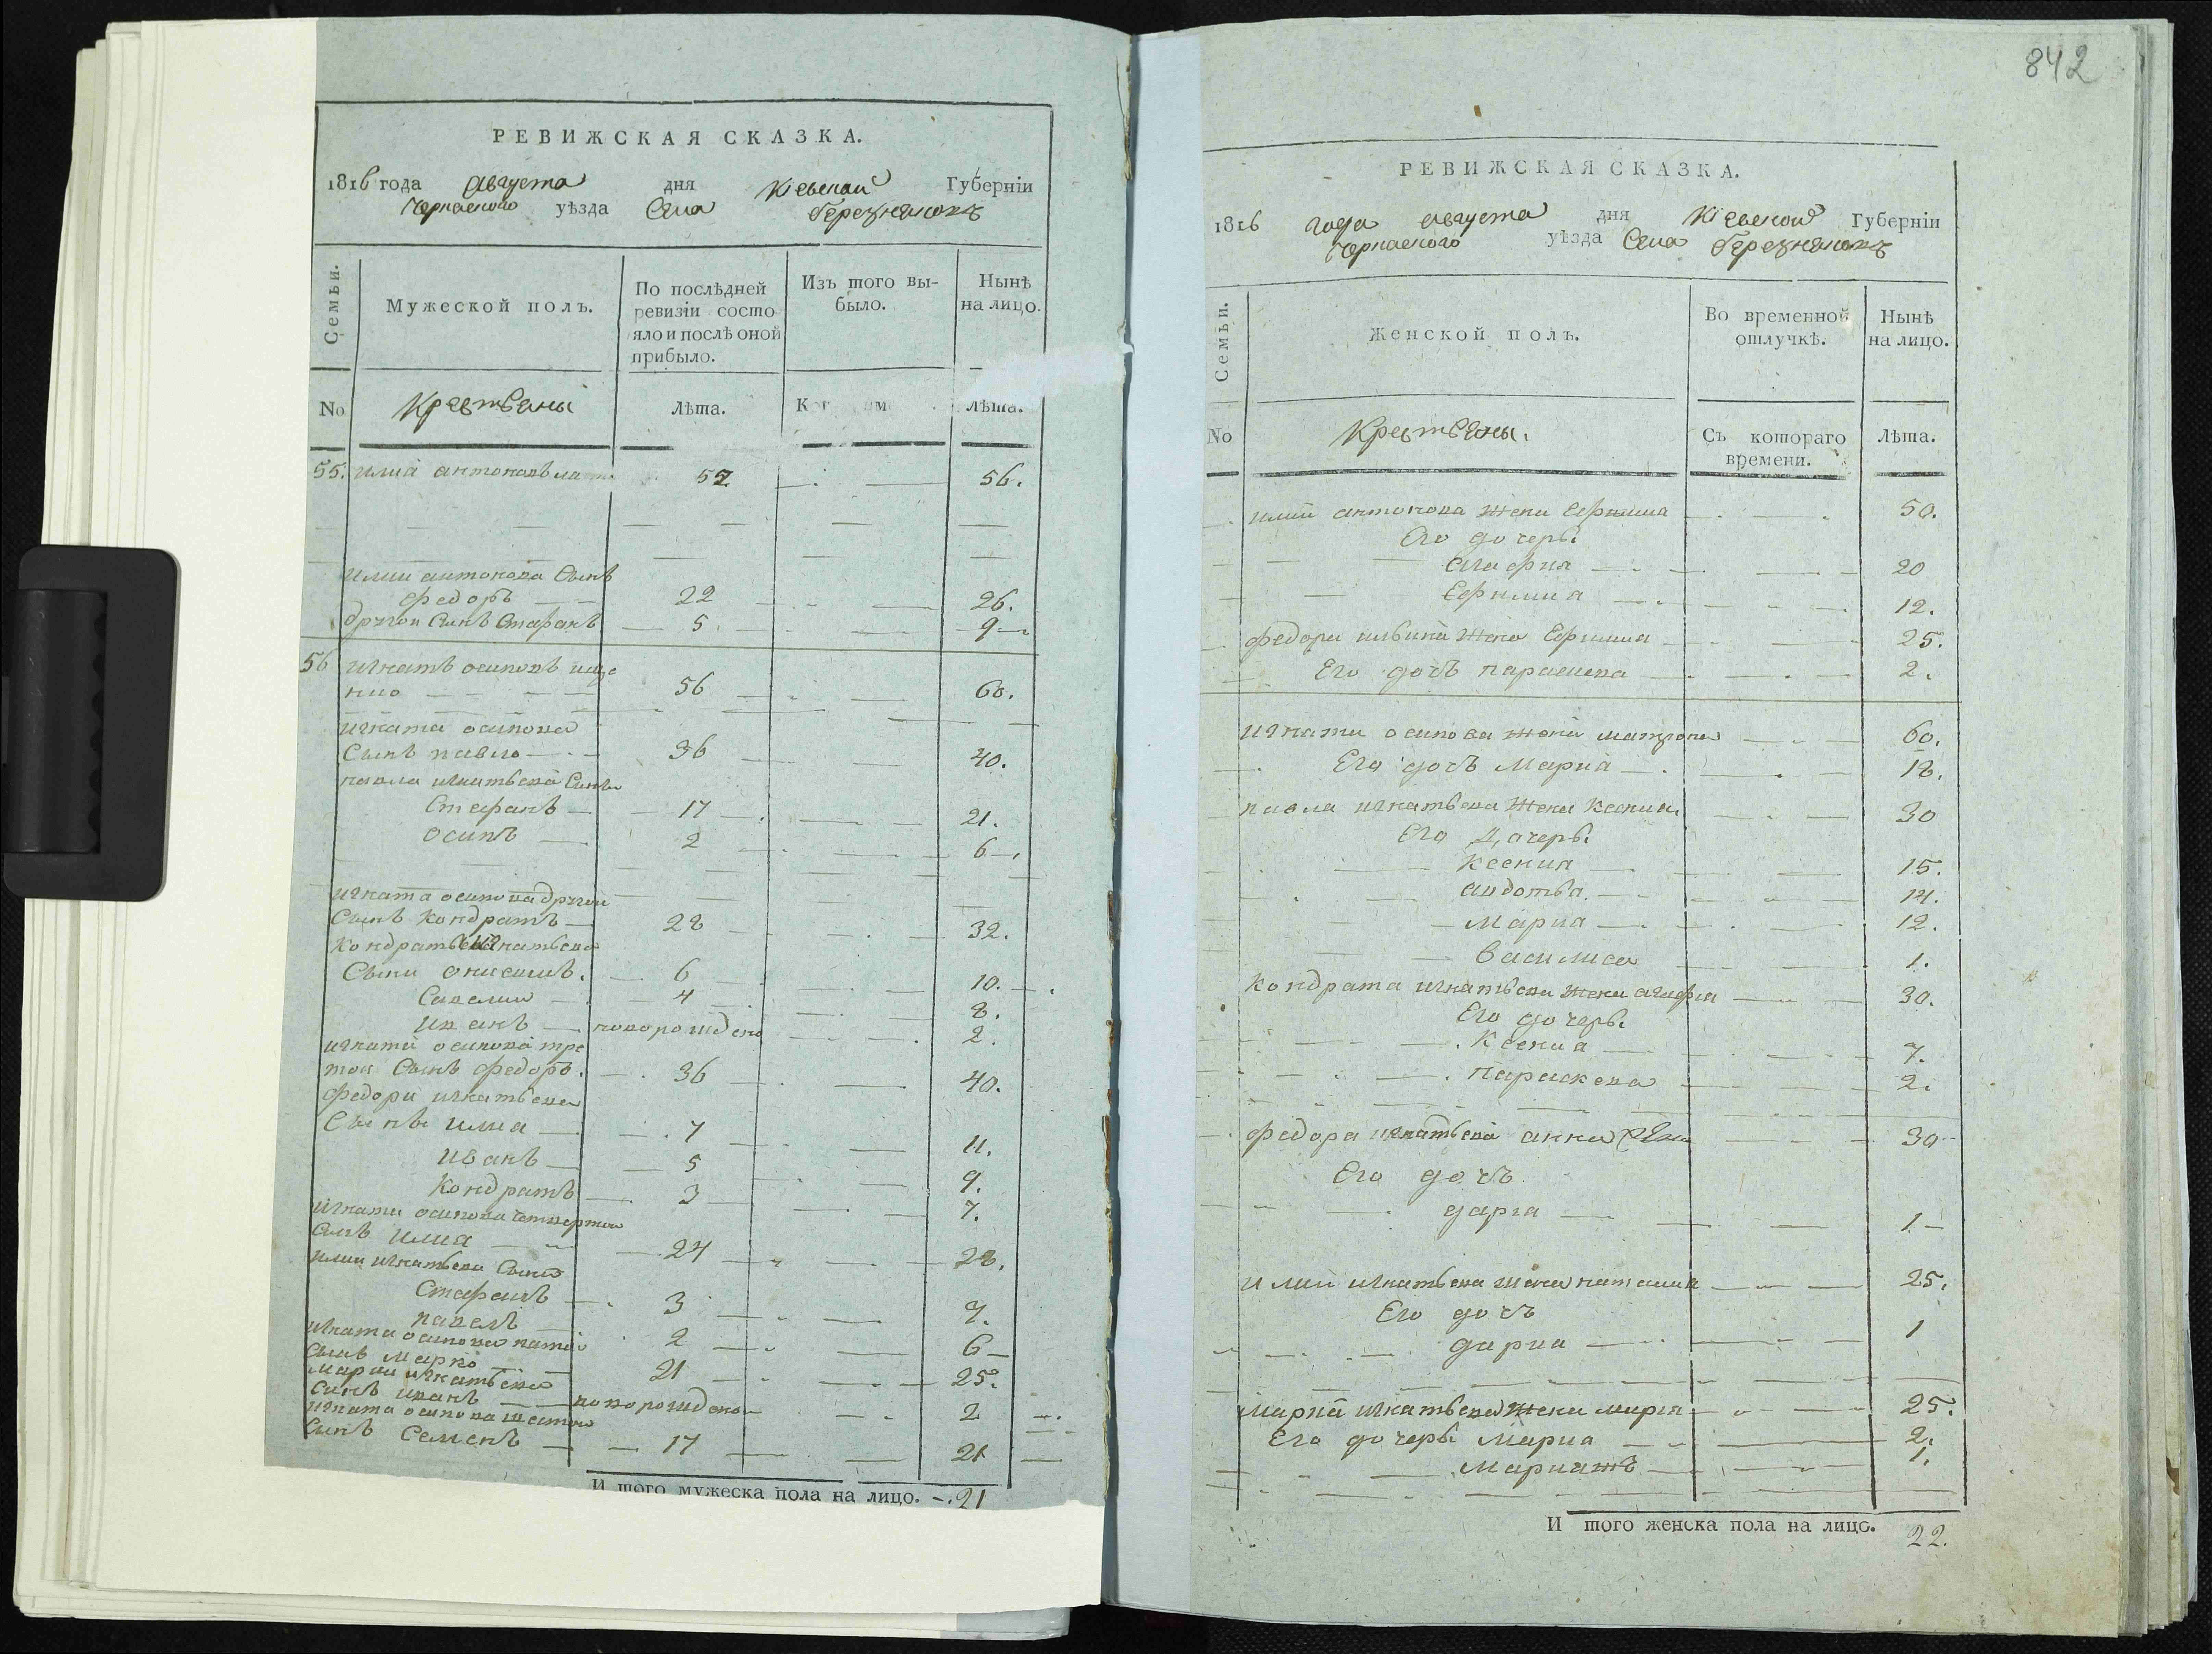 РЕВИЖСКАЯ СКАЗКА.
1816 года августа дня Кіевской Губерніи
Черкаского уѣзда Села Березняковъ
Семьи.
Мужеской полъ.
По послѣдней ревизіи состояло и послѣ оной прибыло.
Изъ того выбыло.
Нынѣ на лицо.
No
Крестьяны
Лѣта.
Лѣта.
55. илиа антоновъ 52 56.
илии антонова Сынъ
федоръ 22 26.
другои Сынъ Стефанъ 5 9
56 игнатъ осиповъ ище
нко 56 60.
игната осипова
Сынъ павло 36 40.
павла игнатьева Сынъ
Стефанъ 17 21.
осипъ 2 6
игната осипова другои
Сынъ кондратъ 28 32.
кондрата игнатьева
Сыни онисимъ. 6 10.
Савелии 4 8.
иванъ новорожденъ 2.
игната осипова тре
тои Сынъ федоръ. 36 40.
федора игнатьева
Сынъ илиа 7 11.
иванъ 5 9.
Кондратъ 3 7.
игната осипова четвертои
Сынъ илиа 24 28.
илии игнатьева Сыни
Стефанъ 3 7.
павелъ 2 6
игната осипова патои
Сынъ Марко 21 25.
марка игнатьева
Сынъ иванъ новорожденъ 2
игната осипова шестои
Сынъ Семенъ 17 21
И того мужеска пола на лицо. 21
842
РЕВИЖСКАЯ СКАЗКА.
1816 года августа дня Кіевской Губерніи
Черкаского уѣзда Села Березняковъ
Семьи.
Женской полъ.
Во временной отлучкѣ.
Нынѣ на лицо.
No
Крестьяны.
Съ котораго времени.
Лѣта.
илии антонова жена Ефимиа 50.
Его дочери
агафиа 20
Ефимиа 12.
федора илвина жена Ефимиа 25.
Его дочь параскева 2.
игната осипова жена матрона 60.
Его дочь мариа 18.
павла игнатьева жена Ксениа 30
Его Дочери
Ксениа 15.
авдотьа. 14.
Мариа 12.
Василиса 1.
кондрата игнатьева жена агафиа 30.
Его дочери
Ксениа 7.
параскева 2.
федора игнатьева анна жена 30
Его дочь
дариа 1
илии игнатьева жена наталиа 25.
Его дочь
дариа 1
марка игнатьева жена мариа 25.
Его дочери Мариа 2.
Марианъ 1.
И того женска пола на лицо. 22.